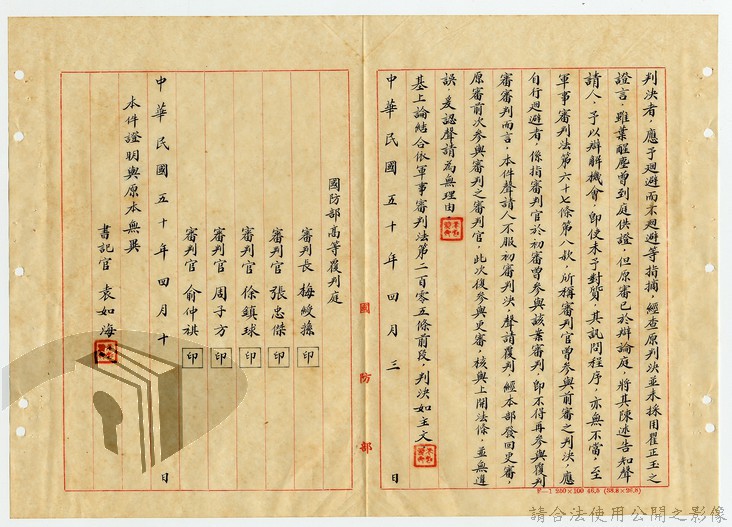 判決者，應予迴避而不迴避等指摘，經查原判決並未採用瞿正玉之
證言，雖葉醒塵曾到庭供證，但原審已於辯論庭，將其陳述告知聲
請人，予以辯解機會，即使未予對質，其訊問程序，亦無不當，至
軍事審判法第六十七條第八款，所稱審判官曾參與前審之判決，應
自行迴避者，係指審判官於初審曾參與該案審判，即不得再參與復判
審審判而言，本件聲請人不服初審判決，聲請復判，經本部發回更審，
原審前次參與審判之審判官，此次復參與更審，核與上開法條，並無違
誤，爰認聲請為無理由。
基上論結合依軍事審判法第二百零五條前段，判決如主文
中華民國五十年四月三日
國防部高等覆判庭
審判長 梅綬蓀 印
審判官 張忠傑 印
審判官 徐鎮球 印
審判官 周子方 印
審判官 俞仲祺 印
中華民國五十年四月十日
本件證明與原本無異
書記官 袁如海
國防部
F—1 250×100 46,5 (38.8×26.8)
請合法使用公開之影像